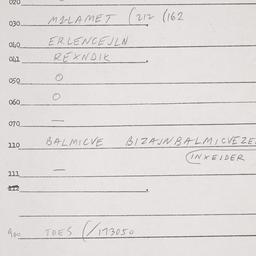 020
030 MELAMET (212 (162
040 ERLENCEJLN
041 REXNDIK
050 O
060 O
070 —
110 BALMICVE BIZAJNBALMICVEZE
(INXEIDER
111 —
112
900 TOES (/173050